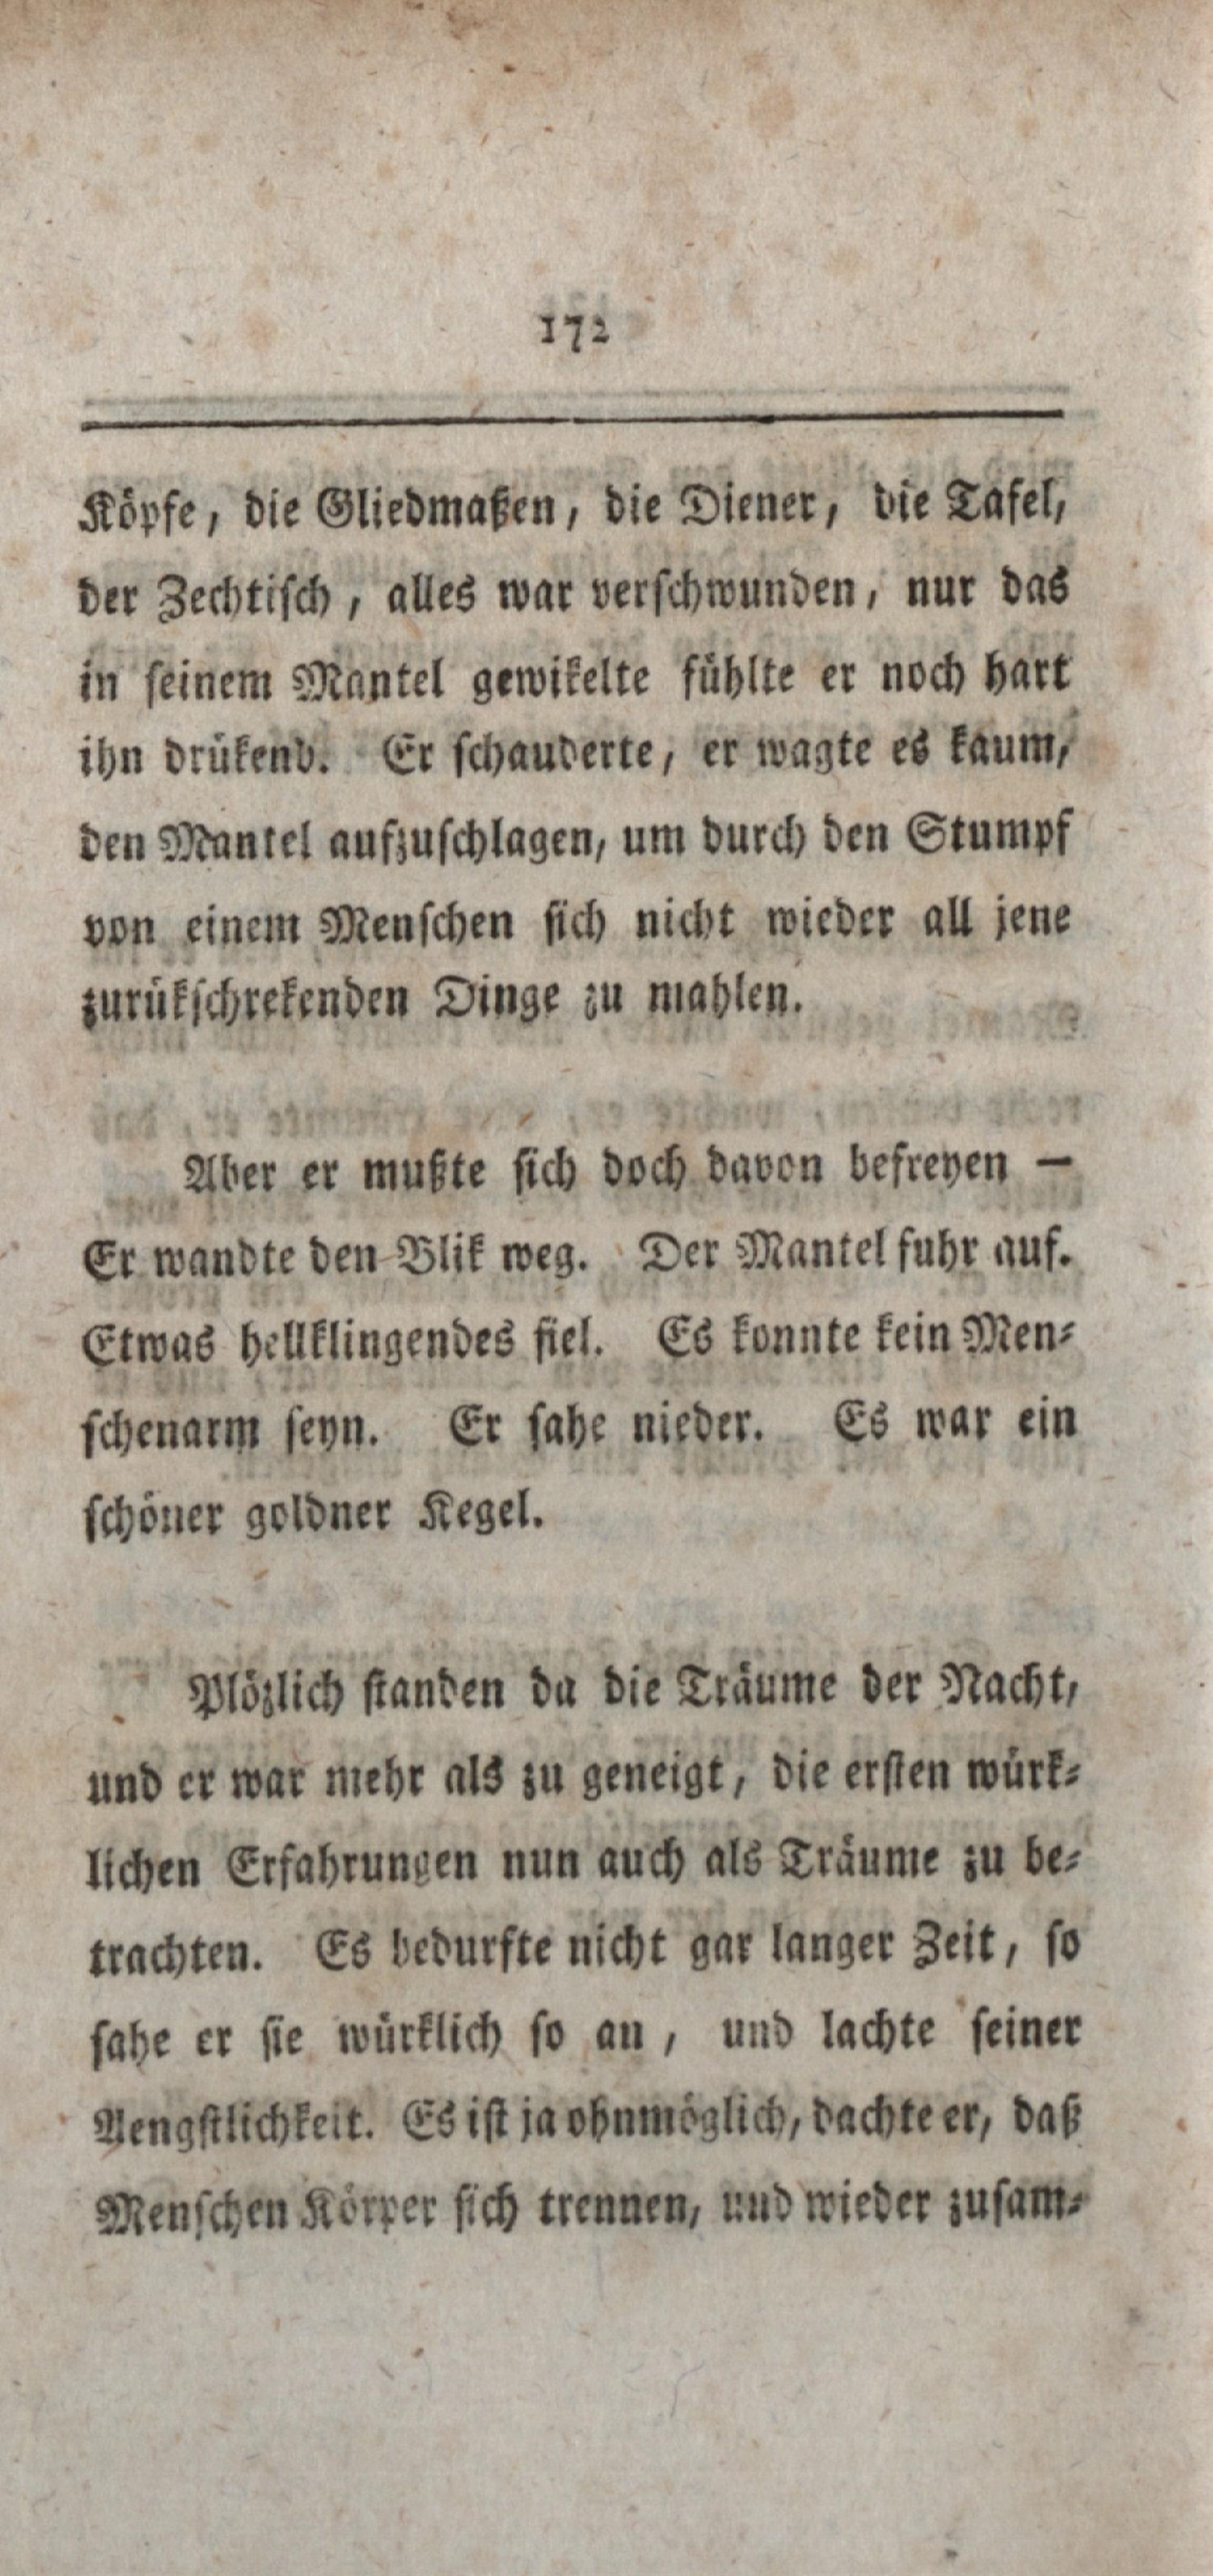 172
Köpfe, die Gliedmaßen, die Diener, die Tafel,
der Zechtisch, alles war verschwunden, nur das
in seinem Mantel gewikelte fühlte er noch hart
ihn drükend. Er schauderte, er wagte es kaum,
den Mantel aufzuschlagen, um durch den Stumpf
von einem Menschen sich nicht wieder all jene
zurükschrekenden Dinge zu mahlen.
Aber er mußte sich doch davon befreyen —
Er wandte den Blik weg. Der Mantel fuhr auf.
Etwas hellklingendes fiel. Es konnte kein Men-
schenarm seyn. Er sahe nieder. Es war ein
schöner goldner Kegel.
Plözlich standen da die Träume der Nacht,
und er war mehr als zu geneigt, die ersten würk-
lichen Erfahrungen nun auch als Träume zu be-
trachten. Es bedurfte nicht gar langer Zeit, so
sahe er sie würklich so an, und lachte seiner
Aengstlichkeit. Es ist ja ohnmöglich, dachte er, daß
Menschen Körper sich trennen, und wieder zusam-